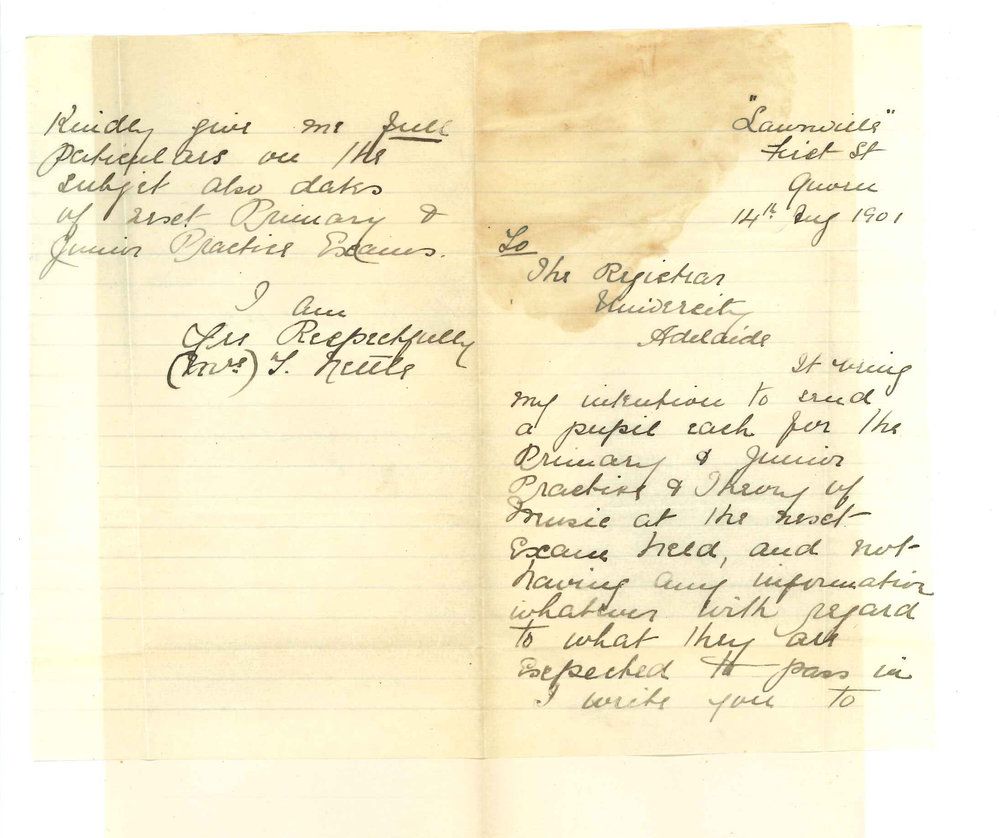 "Lawnville"
First St
Quorn
14th Aug 1901
To
The Registrar
University
Adelaide
It being
my intention to send
a pupil each for the
Primary & Junior
Practice & Theory of
Music at the next
Exam held, and not
having any information
whatever with regard
to what they are
Expected to pass in
I write you to
Kindly give me full
Paticulars on the
subject also dates
of next Primary &
Junior Practice Exams.
I am
Yrs Respectfully
(Mrs) T. Nettle